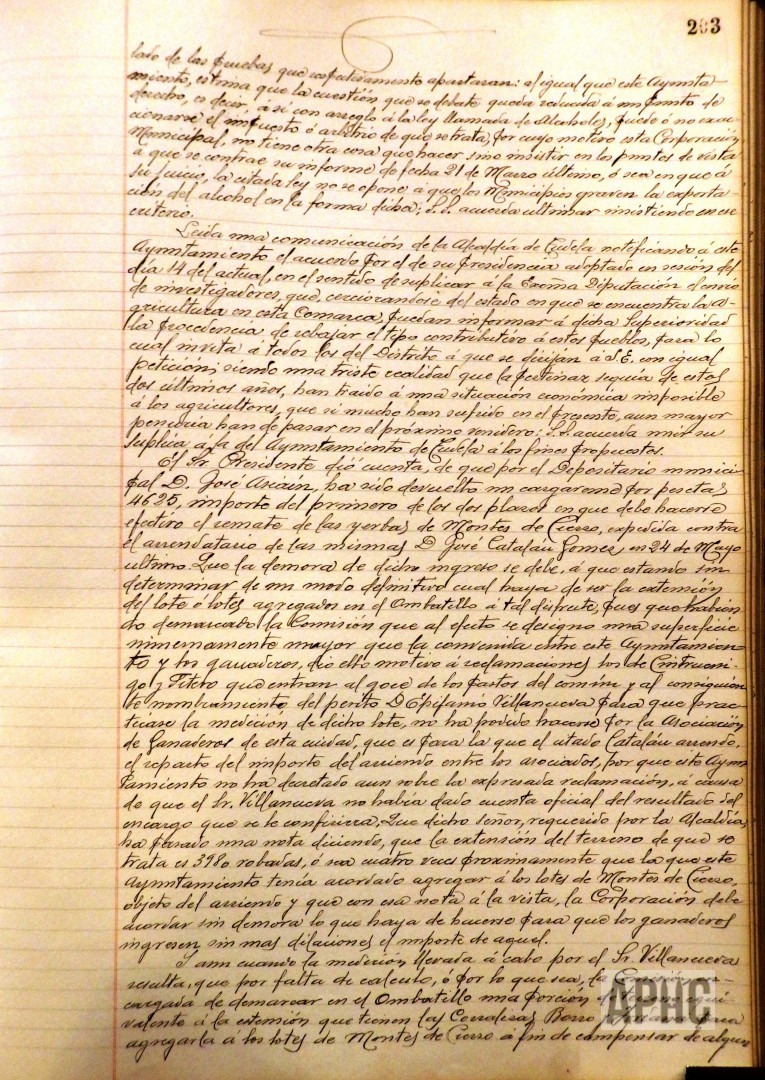 203
lado de las pruebas que respectivamente aportaran: al igual que este Ayunta-
miento, estima que la cuestión que se debate queda reducida á un punto de
derecho, es decir, á si con arreglo á la ley llamada de Alcoholes, puede ó no exac-
cionarse el impuesto ó arbitrio de que se trata, por cuyo motivo esta Corporación
Municipal, no tiene otra cosa que hacer, sino insistir en los puntos de vista
á que se contrae su informe de fecha 21 de Marzo último, ó sea en que á
su juicio, la citada ley no se opone á que los Municipios graven la exporta-
ción del alcohol en la forma dicha; S.S. acuerda ultimar insistiendo en ese
criterio.
Leida una comunicación de la Alcaldía de Tudela notificando á este
Ayuntamiento el acuerdo por el de su Presidencia adoptado en sesión del
día 14 del actual, en el sentido de suplicar á la Excma Diputación el envio
de investigadores, que, cerciorandose del estado en que se encuentra la a-
gricultura en esta Comarca, puedan informar á dicha Superioridad
la procedencia de rebajar el tipo contributivo á estos pueblos, para lo
cual invita á todos los del Distrito á que se dirijan á S.E. con igual
peticion; siendo una triste realidad que la pertinaz sequía de estos
dos ultimos años, han traido á una situación económica imposible
á los agricultores, que si mucho han sufrido en el presente, aun mayor
penuria han de pasar en el próximo venidero: S.S. acuerda unir su
suplica á la del Ayuntamiento de Tudela á los fines propuestos.
El Sr. Presidente dió cuenta, de que por el Depositario munici-
pal D. José Asiáin, ha sido devuelto un cargareme por pesetas
4625, importe del primero de los dos plazos en que debe hacerse
efectivo el remate de las yerbas de Montes de Cierzo, expedida contra
el arrendatario de las mismas D José Catalán Gomez, en 24 de Mayo
ultimo. Que la demora de dicho ingreso se debe, á que estando sin
determinar de un modo definitivo cual haya de ser la extensión
del lote ó lotes agregados en el Ombatillo á tal disfrute, pues que habien-
do demarcado la Comisión que al efecto se designo una superficie
inmensamente mayor que la convenida entre este Ayuntamien-
to y los ganaderos, dio ello motivo á reclamaciones los de Cintrueni-
go y Fitero que entran al goce de los pastos del comun y al consiguien-
te nombramiento del perito D. Epifanio Villanueva para que prac-
ticase la medición de dicho lote, no ha podido hacerse por la Asociación
de Ganaderos de esta ciudad, que es para la que el citado Catalán arrendo,
el reparto del importe del arriendo entre los asociados, por que este Ayun-
tamiento no ha decretado aun sobre la expresada reclamación, á causa
de que el Sr. Villanueva no había dado cuenta oficial del resultado del
encargo que se le confiriera. Que dicho señor, requerido por la Alcaldía,
ha pasado una nota diciendo, que la extensión del terreno de que se
trata es 3980 robadas, ó sea cuatro veces proximamente que la que este
Ayuntamiento tenía acordado agregar á los lotes de Montes de Cierzo,
objeto del arriendo y que con esa nota á la vista, la Corporación debe
acordar sin demora lo que haya de hacerse para que los ganaderos
ingresen sin mas dilaciones el importe de aquel.
Y aun cuando la medición llevada á cabo por el Sr. Villanueva
resulta, que por falta de calculo, ó por lo que sea, la Comisión en-
cargada de demarcar en el Ombatillo una porción de equi-
valente á la extensión que tienen las Corralizas para
agregarla á los lotes de Montes de Cierzo á fin de compensar de algun
APHC